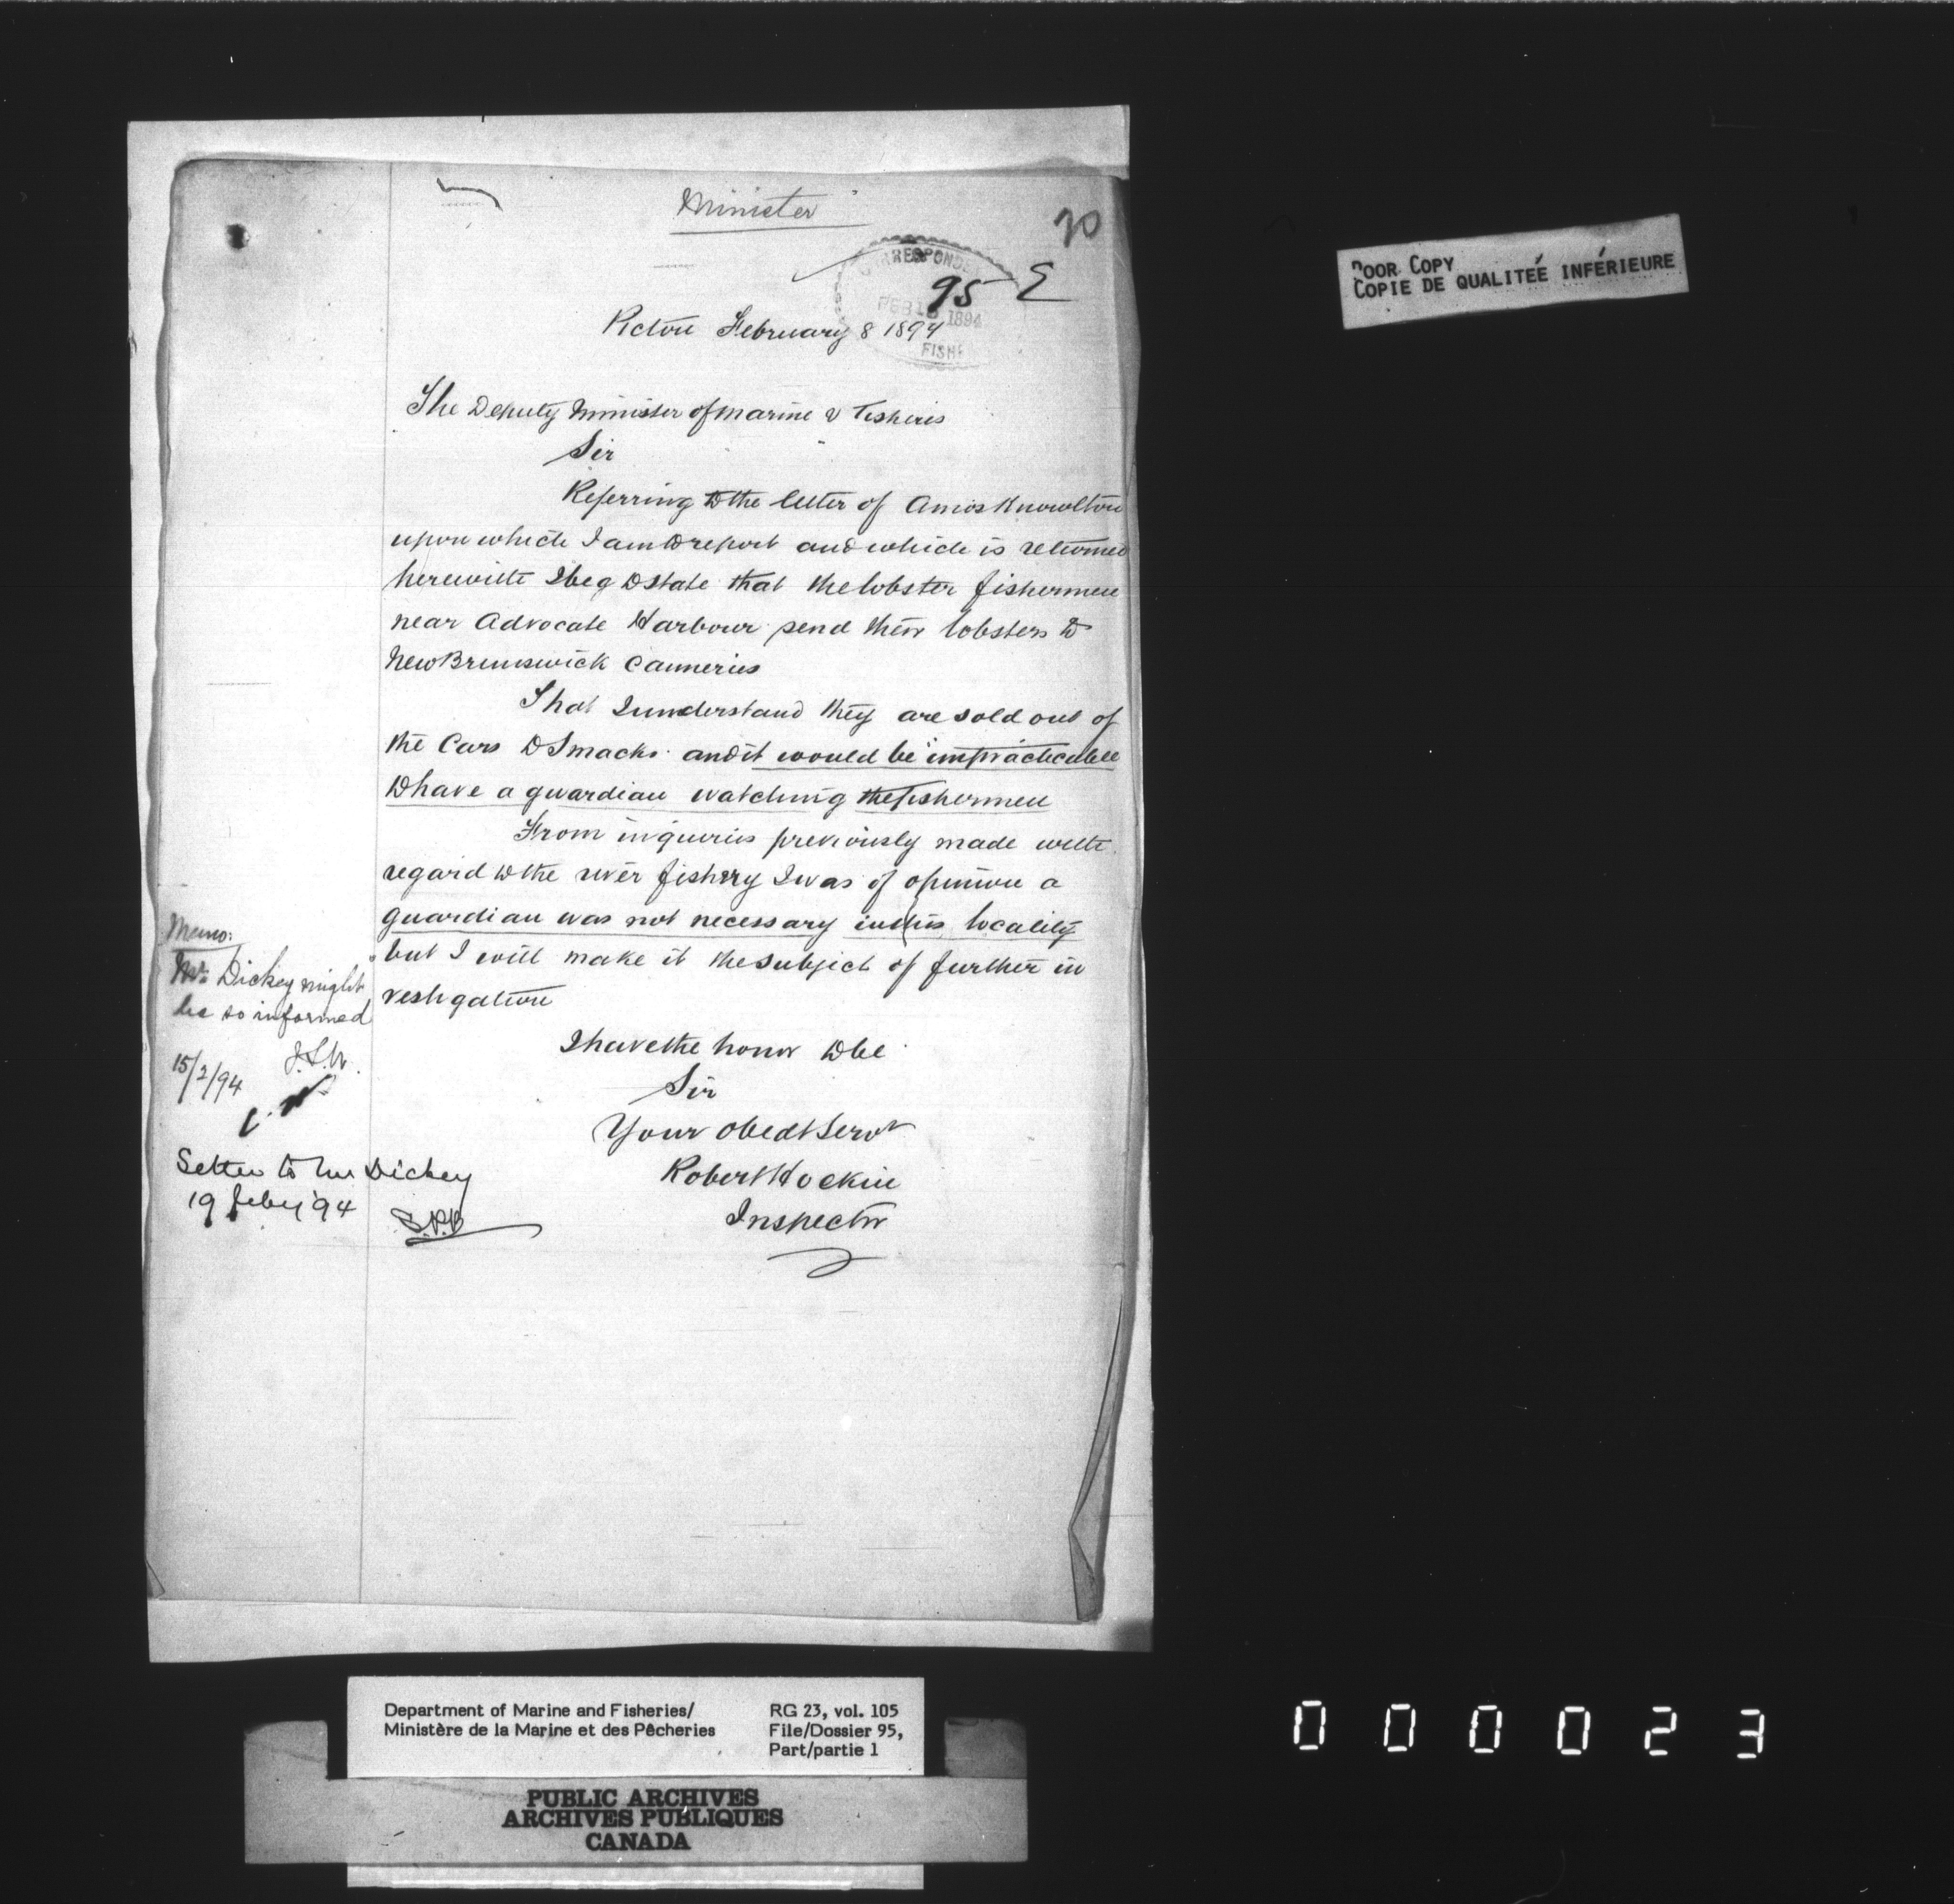 Minister
20
CORRESPOND
95 E
FEB 1894
FISHE
Pictou February 8 1894
The Deputy Minister of Marine & Fisheris
Sir
Referring to the letter of Amos Knowlton
upon which I am to report and which is returned
herewith I beg to state that the lobster fishermen
near Advocate Harbour send their lobsters to
New Brunswick Canneries
That I understand they are sold out of
the Cars to Smacks and it would be impracticable
to have a guardian watching the fishermen
From inquiries previously made with
regard to the river fishery I was of opinion a
guardian was not necessary in this locality
but I will make it the subject of further in
vestigation
I have the honor to be
Sir
Your obedt Servt
Robert Hockin
Inspector
Memo:
Mr. Dickey might
be so informed
15/2/94
Letter to Mr Dickey
19 Feby '94
S.P.B
POOR COPY
COPIE DE QUALITEÉ INFÉRIEURE
Department of Marine and Fisheries/
Ministère de la Marine et des Pêcheries
RG 23, vol. 105
File/Dossier 95,
Part/partie 1
PUBLIC ARCHIVES
ARCHIVES PUBLIQUES
CANADA
000023